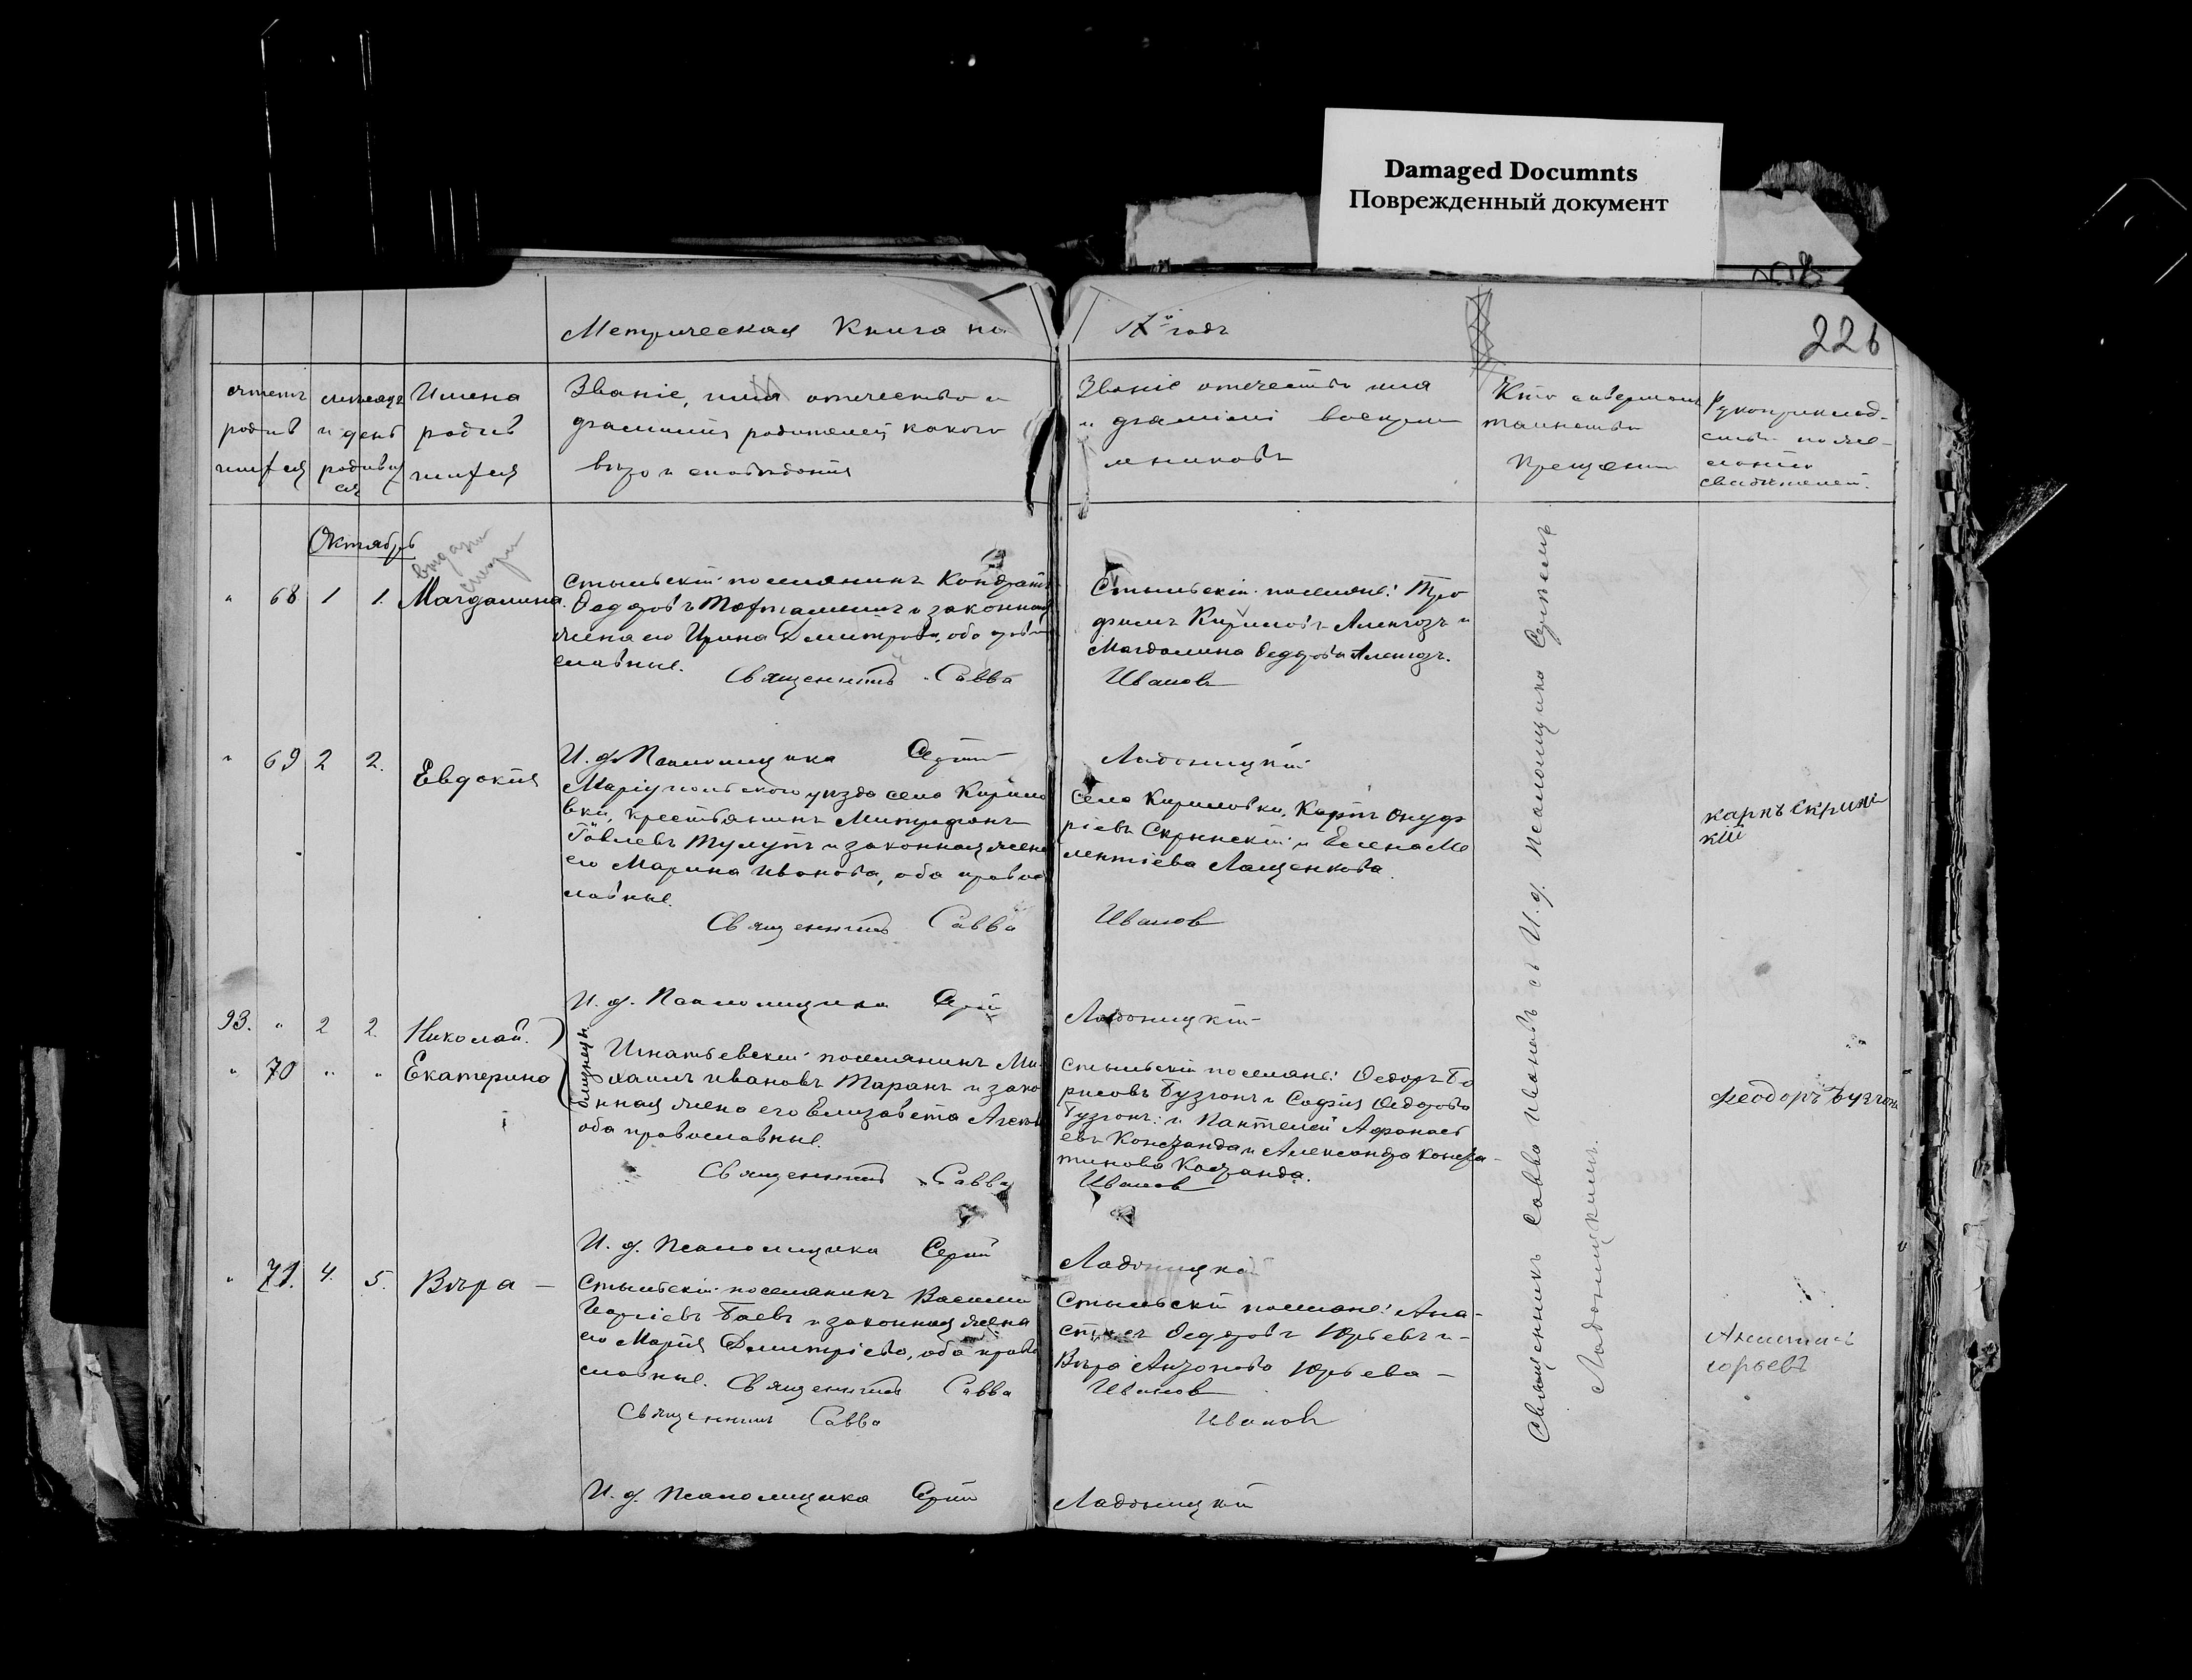 Damaged Documnts
Повреждённый документ
Метрическая Книга на
годъ
226
счетъ родив шихся
месяцъ и день родивш ся
Имена родив шихся
Званіе, имя отечество и
фамилія родителей какого
вѣро исповѣданія
Званіе отечество имя
и фамилія воспріем
никовъ
Кто совершалъ
таинство
крещенія
Рукоприклад-
ство по же-
ланію
свидетелей.
Октябрь
" 68 1 1. Магдалина.
Стыльскій поселянинъ Кондратъ
Феодоровъ и законная
жена его Ирина Дмитрова, оба право
славные.
Священникъ Савва
Стыльскіи поселяне: Тро
фимъ Кириловъ и
Магдалина Феодорова
Ивановъ
" 69 2 2. Евдокія
И. д. Псаломщика Сергій
Маріупольскаго уѣзда села Кирило
вки, крестьянинъ Митрофанъ
Павлевъ Тулупъ и законная жена
его Марина Иванова, оба право
славные.
Священникъ Савва
Ладоницкій
Села Кириловки, Карпъ Онуф
ріевъ Скрынскій и Елена Ме
лентіева Лащенкова.
Ивановъ
карпъ скрин
кій
93. " 2 2 Николай.
" 70 " " Екатерина
близнецы
И. д. Псаломщика Сергій
Игнатьевскій поселянинъ Ми
хаилъ Ивановъ Таранъ и зако
нная жена его Елизавета
оба православные.
Священникъ Савва
Ладоницкій
Стыльскіи поселяне: Федоръ Бо
рисовъ Бузгонъ и Софія Федорова
Бузгонъ: и Пантелей Афанасі
евъ и Александра Конста-
тинова
Ивановъ
Феодоръ Бузгонъ
" 71. 4. 5. Вѣра —
И. д. Псаломщика Сергій
Стыльскій поселянинъ Василій
Баевъ и законная жена
его Марія Дмитріева, оба право
славные. Священникъ Савва
Священникъ Савва
И. д. Псаломщика Сергій
Ладоницкій
Стыльскій поселяне: Ана-
стасъ Феодоровъ Юрьевъ и-
Вѣра Юрьева —
Ивановъ
Ивановъ
Ладоницкій
юрьевъ
Священникъ Савва Ивановъ съ И. д. Псаломщика Сергіемъ
Ладоницкимъ.